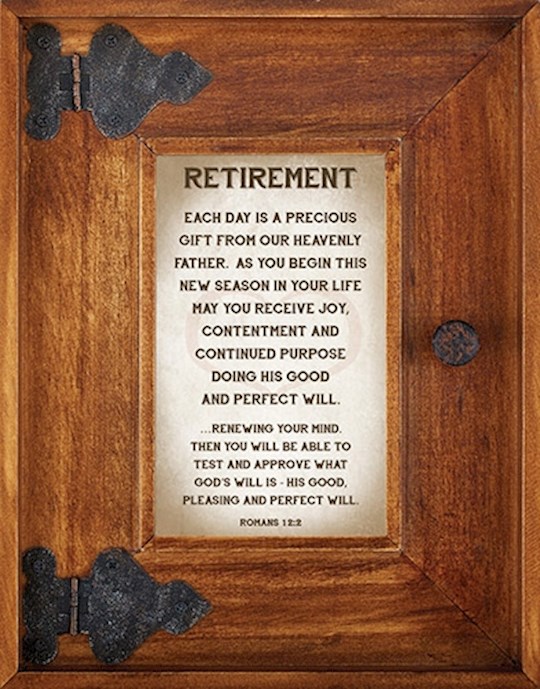 RETIREMENT
EACH DAY IS A PRECIOUS
GIFT FROM OUR HEAVENLY
FATHER. AS YOU BEGIN THIS
NEW SEASON IN YOUR LIFE
MAY YOU RECEIVE JOY,
CONTENTMENT AND
CONTINUED PURPOSE
DOING HIS GOOD
AND PERFECT WILL.
...RENEWING YOUR MIND.
THEN YOU WILL BE ABLE TO
TEST AND APPROVE WHAT
GOD'S WILL IS - HIS GOOD,
PLEASING AND PERFECT WILL.
ROMANS 12:2